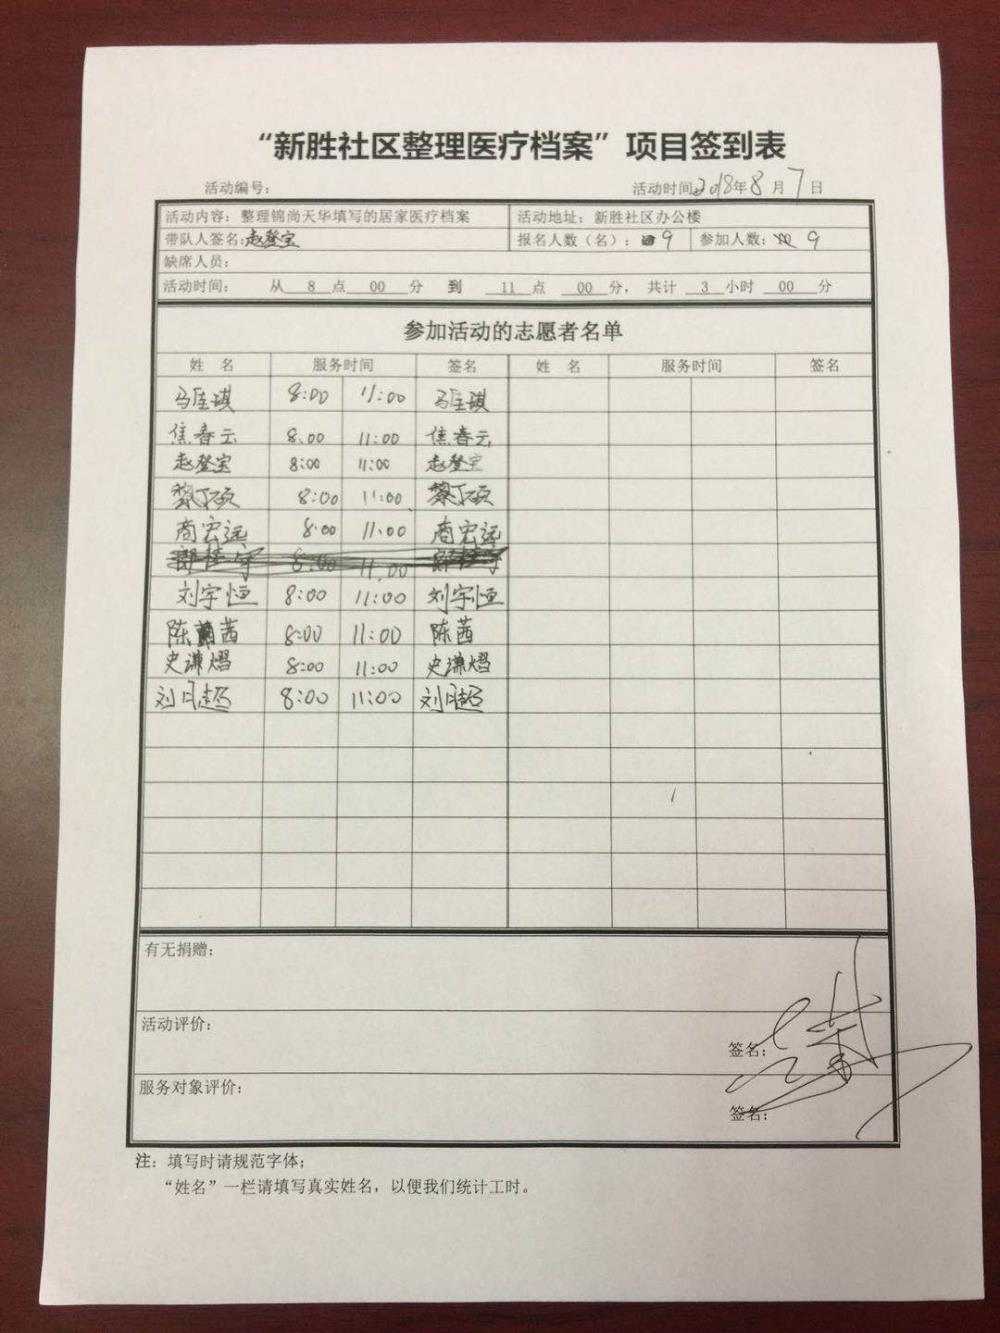 “新胜社区整理医疗档案”项目签到表
活动编号: 活动时间2018年8月7日
活动内容: 整理锦尚天华填写的居家医疗档案 活动地址: 新胜社区办公楼
带队人签名:赵登宝 报名人数(名): 9 参加人数: 9
缺席人员:
活动时间: 从 8 点 00 分 到 11 点 00 分, 共计 3 小时 00 分
参加活动的志愿者名单
姓 名 服务时间 签名 姓 名 服务时间 签名
马佳琪 8:00 11:00 马佳琪
焦春云 8:00 11:00 焦春云
赵登宝 8:00 11:00 赵登宝
黎丁硕 8:00 11:00 黎丁硕
商宏远 8:00 11:00 商宏远
8:00 11:00
刘宇恒 8:00 11:00 刘宇恒
陈茜 8:00 11:00 陈茜
史谦熠 8:00 11:00 史谦熠
刘月超 8:00 11:00 刘月超
有无捐赠:
活动评价:
签名:
服务对象评价:
签名:
注: 填写时请规范字体;
“姓名”一栏请填写真实姓名, 以便我们统计工时。